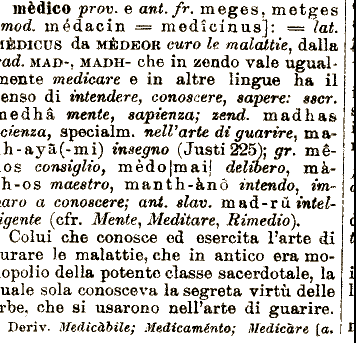 mèdico prov. e ant. fr. meges, metges
mod. médacin = medîcinus]: = lat.
MÈDICUS da MÈDEOR curo le malattie, dalla
rad. MAD-, MADH- che in zendo vale ugual-
mente medicare e in altre lingue ha il
senso di intendere, conoscere, sapere: sscr.
medhâ mente, sapienza; zend. madhas
cienza, specialm. nell'arte di guarire, ma-
h-ayâ(-mi) insegno (Justi 225); gr. mê-
os consiglio, mèdo[mai] delibero, mà-
h-os maestro, manth-ànô intendo, im-
aro a conoscere; ant. slav. mad-rŭ intel-
igente (cfr. Mente, Meditare, Rimedio).
Colui che conosce ed esercita l'arte di
urare le malattie, che in antico era mo-
opolio della potente classe sacerdotale, la
uale sola conosceva la segreta virtù delle
rbe, che si usarono nell'arte di guarire.
Deriv. Medicàbile; Medicaménto; Medicàre [a.